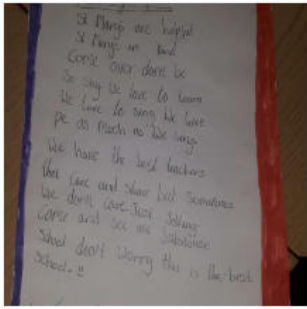 St Mungo are helpful
St Mungo are kind
Come over dont be
So shy we love to learn
We love to sing we love
pe as much as we sing
we have the best teachers
that care and share but sometimes
we dont care Just Joking
come and see are
School don't worry this is the best
School.!!